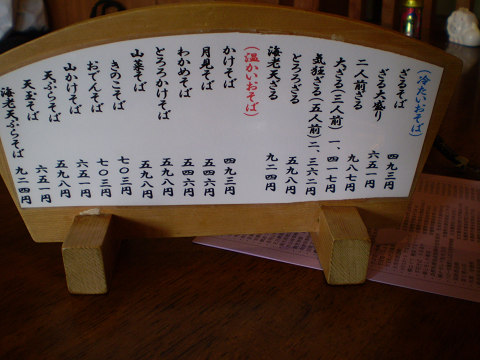 (冷たいおそば)
ざるそば 四九三円
ざる大盛り 六五一円
二人前ざる 九八七円
大ざる(三人前) 一、四一七円
気狂ざる(五人前) 二、三六二円
とろろざる 五九八円
海老天ざる 九二四円
(温かいおそば)
かけそば 四九三円
月見そば 五四六円
わかめそば 五四六円
とろろかけそば 五九八円
山菜そば 五九八円
きのこそば 七〇三円
おでんそば 七〇三円
山かけそば 六五一円
天ぷらそば 五九八円
天玉そば 六五一円
海老天ぷらそば 九二四円